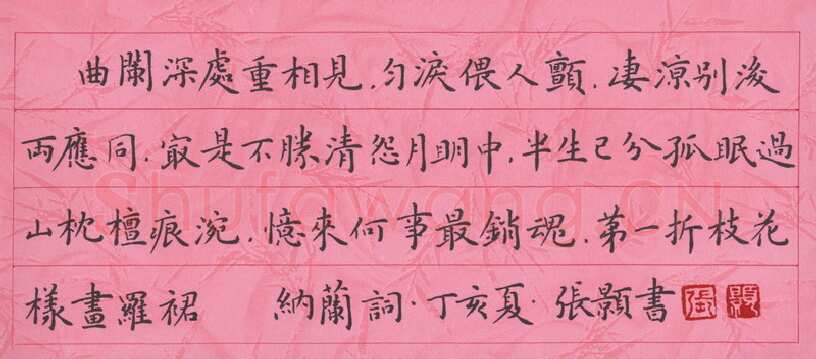 曲闌深處重相見.匀淚偎人顫.凄涼别後
兩應同.寂是不勝清怨月明中.半生已分孤眠過
山枕檀痕涴.憶來何事最銷魂.第一折枝花
樣畫羅裙 納蘭詞·丁亥夏·張顥書
張 顥
Shufawang.CN